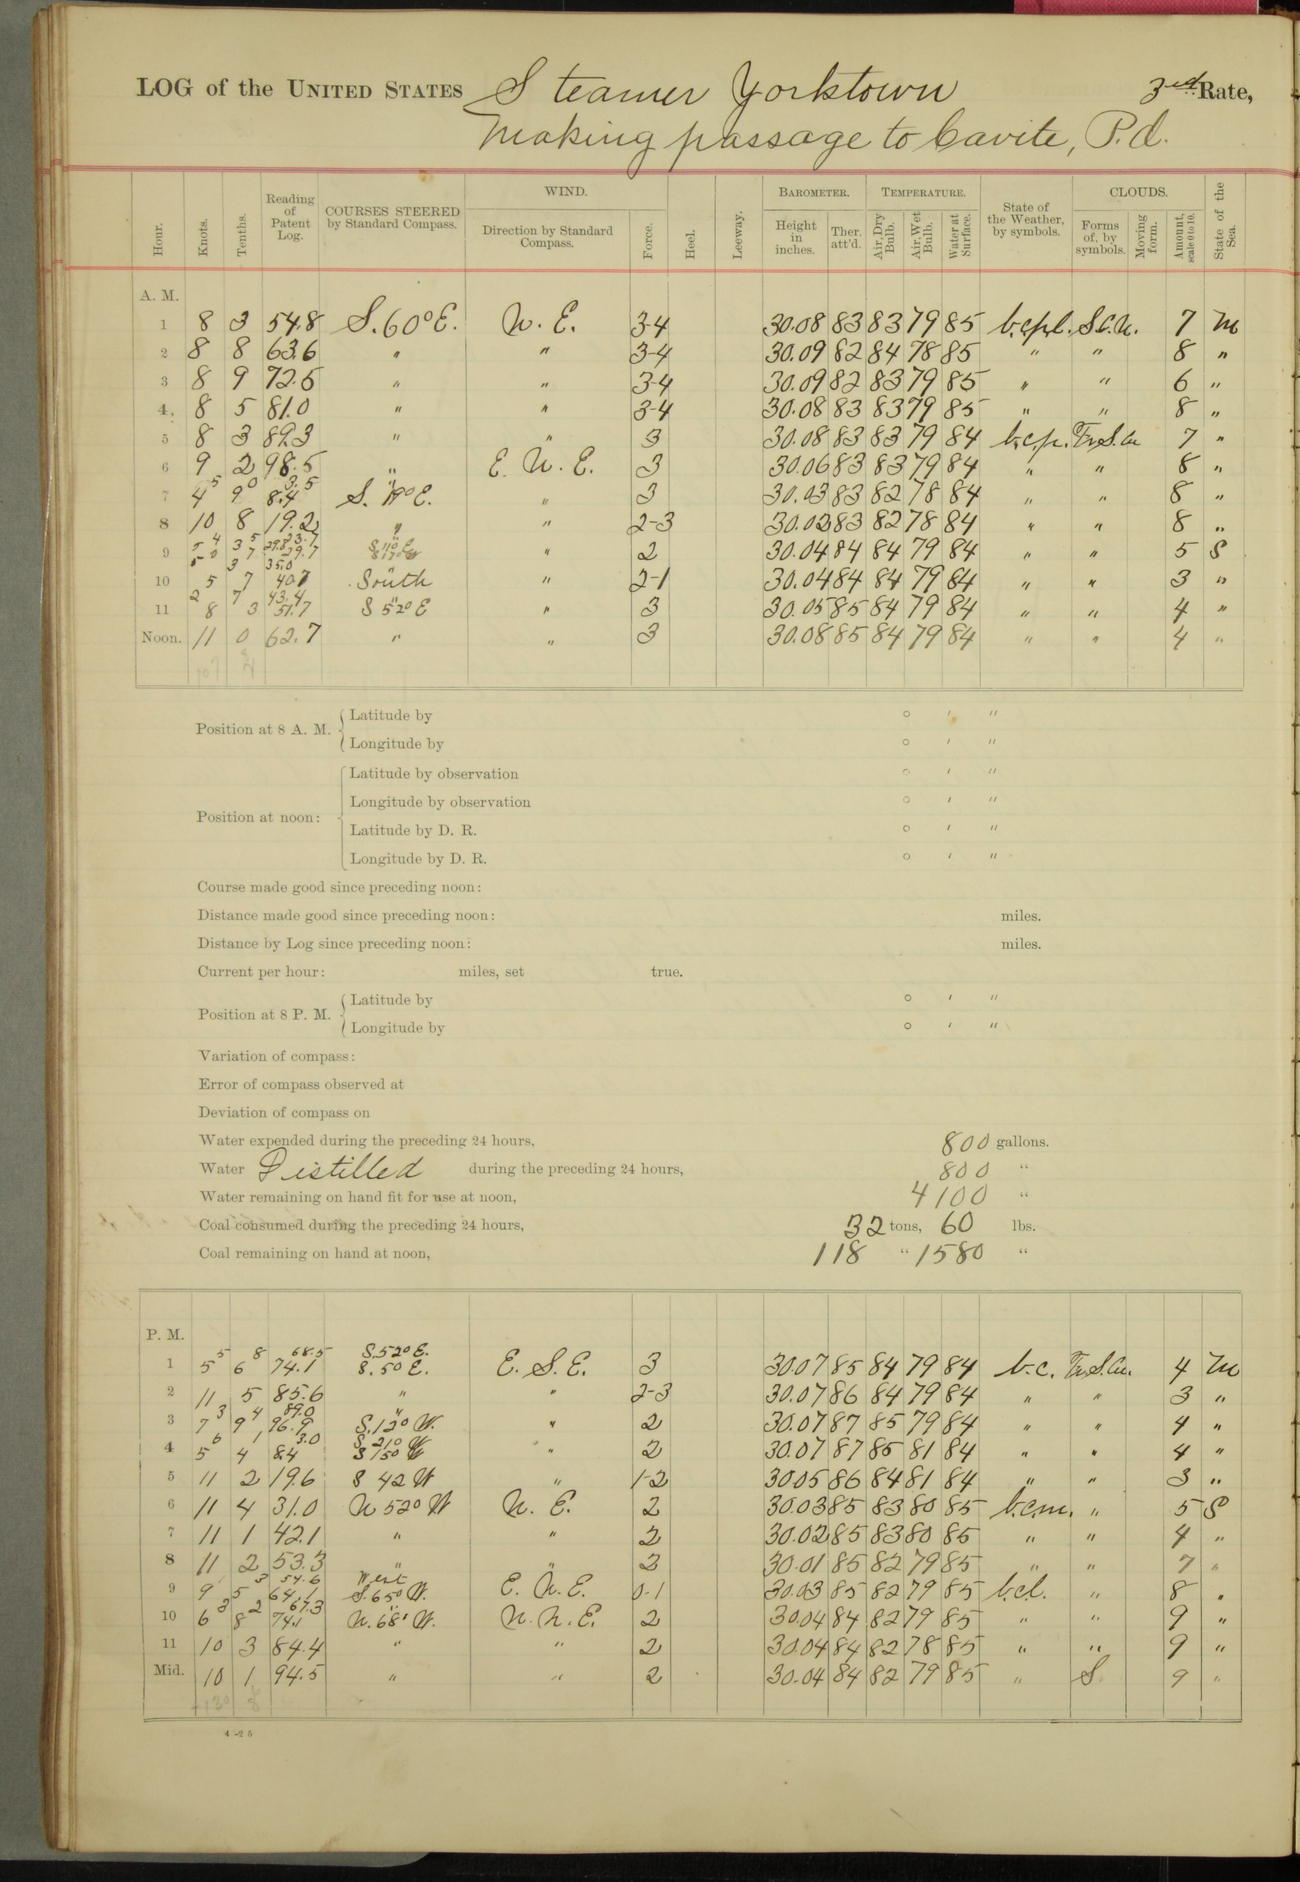 LOG of the UNITED STATES Steamer Yorktown 3rd Rate,
Making passage to Cavite, P.I.
Hour. Knots. Tenths. Reading of Patent Log. COURSES STEERED by Standard Compass. WIND. Direction by Standard Compass. Force. Heel. Leeway. BAROMETER. Height in inches. Ther. att'd. TEMPERATURE. Air, Dry Bulb. Air, Wet Bulb. Water at Surface. State of the Weather, by symbols. CLOUDS. Forms of, by symbols. Moving form. Amount, scale 0 to 10. State of the Sea.
A. M.
1 8 3 54.8 S. 60° E. N. E. 3-4 30.08 83 83 79 85 b.c.p.l. S.C.N. 7 M
2 8 8 63.6 " " 3-4 30.09 82 84 78 85 " " 8 "
3 8 9 72.5 " " 3-4 30.09 82 83 79 85 " " 6 "
4 8 5 81.0 " " 3-4 30.08 83 83 79 85 " " 8 "
5 8 3 89.3 " " 3 30.08 83 83 79 84 b.c.p. 7 "
6 9 2 98.5 " E. N. E. 3 30.06 83 83 79 84 " " 8 "
5 0 3.5 "
7 4 9 8.4 S. E. " 3 30.03 83 82 78 84 " " 8 "
8 10 8 19.2 " " 2-3 30.02 83 82 78 84 " " 8 "
9 " 2 30.04 84 84 79 84 " " 5 S
3 35.0 "
10 5 7 40.7 South " 2-1 30.04 84 84 79 84 " " 3 "
2 7 43.4 "
11 8 3 51.7 S 52° E " 3 30.05 85 84 79 84 " " 4 "
Noon. 11 0 62.7 " " 3 30.08 85 84 79 84 " " 4 "
Position at 8 A. M. Latitude by ° ' "
Longitude by ° ' "
Position at noon: Latitude by observation ° ' "
Longitude by observation ° ' "
Latitude by D. R. ° ' "
Longitude by D. R. ° ' "
Course made good since preceding noon:
Distance made good since preceding noon: miles.
Distance by Log since preceding noon: miles.
Current per hour: miles, set true.
Position at 8 P. M. Latitude by ° ' "
Longitude by ° ' "
Variation of compass:
Error of compass observed at
Deviation of compass on
Water expended during the preceding 24 hours, 800 gallons.
Water Distilled during the preceding 24 hours, 800 "
Water remaining on hand fit for use at noon, 4100 "
Coal consumed during the preceding 24 hours, 32 tons, 60 lbs.
Coal remaining on hand at noon, 118 " 1580 "
P. M.
5 8 68.5 S. 52° E.
1 5 6 74.1 S. 50 E. E. S. E. 3 30.07 85 84 79 84 b.c. 4 M
2 11 5 85.6 " " 2-3 30.07 86 84 79 84 " " 3 "
3 4 89.0 "
3 7 9 96.9 S. 12° W. " 2 30.07 87 85 79 84 " " 4 "
6 1 3.0 S. 21° W
4 5 4 8.4 S 15° W " 2 30.07 87 85 81 84 " " 4 "
5 11 2 19.6 S 42 W " 1-2 30.05 86 84 81 84 " " 3 "
6 11 4 31.0 N 52° W N. E. 2 30.03 85 83 80 85 b.c.m. " 5 S
7 11 1 42.1 " " 2 30.02 85 83 80 85 " " 4 "
8 11 2 53.3 " " 2 30.01 85 82 79 85 " " 7 "
1 3 54.6 West
9 9 5 64.1 S. 65° W. E. N. E. 0-1 30.03 85 82 79 85 b.c.l. " 8 "
3 2 67.3 "
10 6 8 74.1 N. 68° W. N. N. E. 2 30.04 84 82 79 85 " " 9 "
11 10 3 84.4 " " 2 30.04 84 82 78 85 " " 9 "
Mid. 10 1 94.5 " " 2 30.04 84 82 79 85 " S. 9 "
4-25